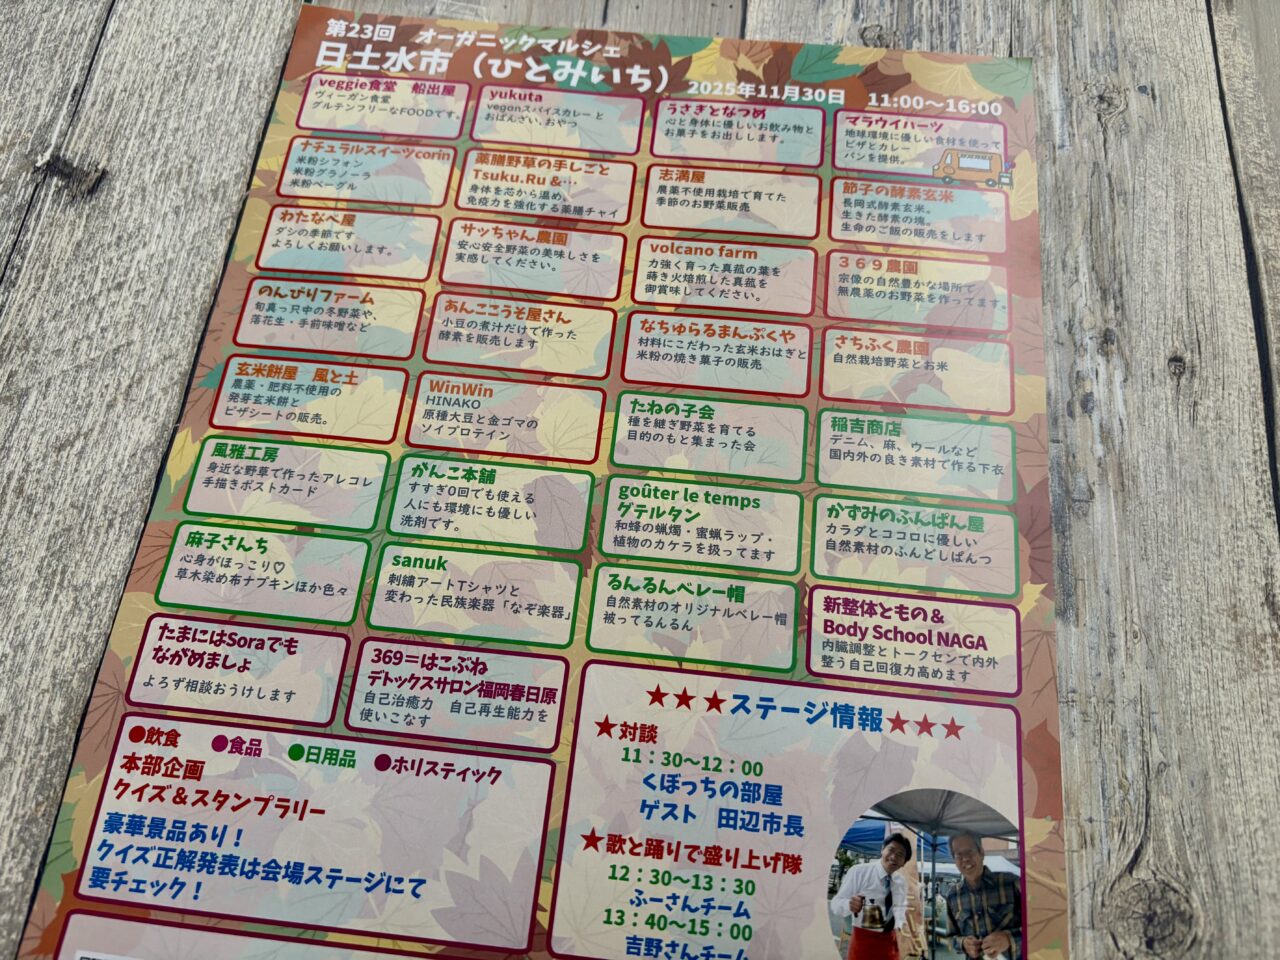 第23回　オーガニックマルシェ
日土水市（ひとみいち）
2025年11月30日　11:00～16:00
veggie食堂　船出屋
ヴィーガン食堂
グルテンフリーなFOODです。
yukuta
veganスパイスカレーと
おばんざい、おやつ
うさぎとなつめ
心と身体に優しいお飲み物と
お菓子をお出しします。
マラウイハーツ
地球環境に優しい食材を使って
ピザとカレー
パンを提供。
ナチュラルスイーツcorin
米粉シフォン
米粉グラノーラ
米粉ベーグル
薬膳野草の手しごと
Tsuku.Ru &…
身体を芯から温め、
免疫力を強化する薬膳チャイ
志満屋
農薬不使用栽培で育てた
季節のお野菜販売
節子の酵素玄米
長岡式酵素玄米。
生きた酵素の塊。
生命のご飯の販売をします
わたなべ屋
ダシの季節です
よろしくお願いします。
サッちゃん農園
安心安全野菜の美味しさを
実感してください。
volcano farm
力強く育った真菰の葉を
蒔き火焙煎した真菰を
御賞味してください。
３６９農園
宗像の自然豊かな場所で
無農薬のお野菜を作ってます。
のんびりファーム
旬真っ只中の冬野菜や、
落花生・手前味噌など
あんここうそ屋さん
小豆の煮汁だけで作った
酵素を販売します
なちゅらるまんぷくや
材料にこだわった玄米おはぎと
米粉の焼き菓子の販売
さちふく農園
自然栽培野菜とお米
玄米餅屋　風と土
農薬・肥料不使用の
発芽玄米餅と
ピザシートの販売。
WinWin
HINAKO
原種大豆と金ゴマの
ソイプロテイン
たねの子会
種を継ぎ野菜を育てる
目的のもと集まった会
稲吉商店
デニム、麻、ウールなど
国内外の良き素材で作る下衣
風雅工房
身近な野草で作ったアレコレ
手描きポストカード
がんこ本舗
すすぎ0回でも使える
人にも環境にも優しい
洗剤です。
goûter le temps
グテルタン
和蜂の蝋燭・蜜蝋ラップ・
植物のカケラを扱ってます
かずみのふんぱん屋
カラダとココロに優しい
自然素材のふんどしぱんつ
麻子さんち
心身がほっこり♡
草木染め布ナプキンほか色々
sanuk
刺繍アートTシャツと
変わった民族楽器「なぞ楽器」
るんるんベレー帽
自然素材のオリジナルベレー帽
被ってるんるん
新整体ともの＆
Body School NAGA
内臓調整とトークセンで内外
整う自己回復力高めます
たまにはSoraでも
ながめましょ
よろず相談おうけします
369＝はこぶね
デトックスサロン福岡春日原
自己治癒力　自己再生能力を
使いこなす
●飲食　●食品　●日用品　●ホリスティック
本部企画
クイズ＆スタンプラリー
豪華景品あり！
クイズ正解発表は会場ステージにて
要チェック！
★★★ステージ情報★★★
★対談
11：30～12：00
くぼっちの部屋
ゲスト　田辺市長
★歌と踊りで盛り上げ隊
12：30～13：30
ふーさんチーム
13：40～15：00
吉野さんチーム